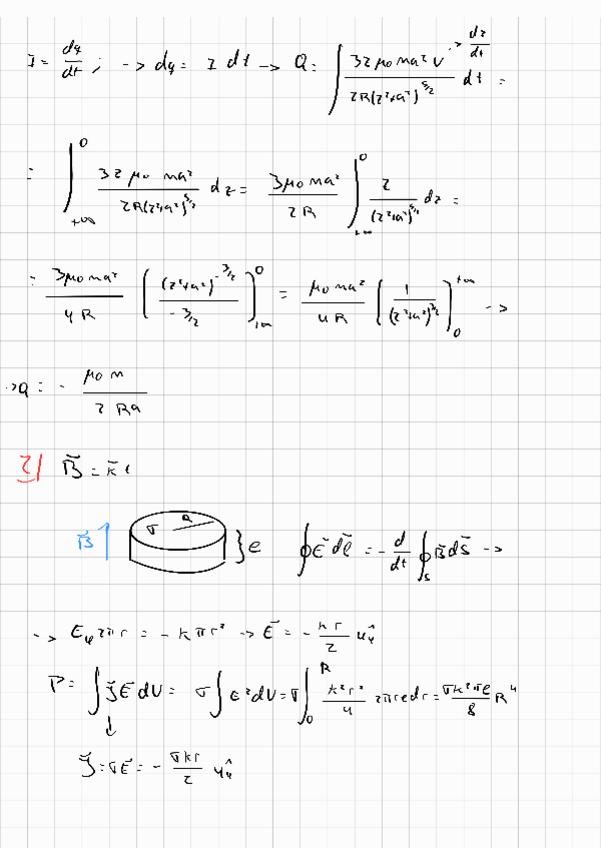 I = dq/dt ; -> dq = I dt -> Q = ∫ 3z μ₀ m a² v / 2R(z²+a²)^5/2 dt = -> dz/dt
= ∫_{+∞}^{0} 3z μ₀ m a² / 2R(z²+a²)^5/2 dz = 3μ₀ m a² / 2R ∫_{+∞}^{0} z / (z²+a²)^5/2 dz =
= 3μ₀ m a² / 4R [ (z²+a²)^-3/2 / -3/2 ]_{+∞}^{0} = μ₀ m a² / 4R [ 1 / (z²+a²)^3/2 ]_{0}^{+∞} ->
-> Q = - μ₀ m / 2Ra
2| B̄ = k̄ t
B̄ σ R } e ∮ Ē dl̄ = - d/dt ∮_S B̄ ds̄ ->
-> E_φ 2πr = - k π r² -> Ē = - kr/2 û_φ
P = ∫ J̄ Ē dV = σ ∫ E² dV = σ ∫_0^R k²r²/4 2πr e dr = σk²πe/8 R⁴
J̄ = σĒ = - σkr/2 û_φ